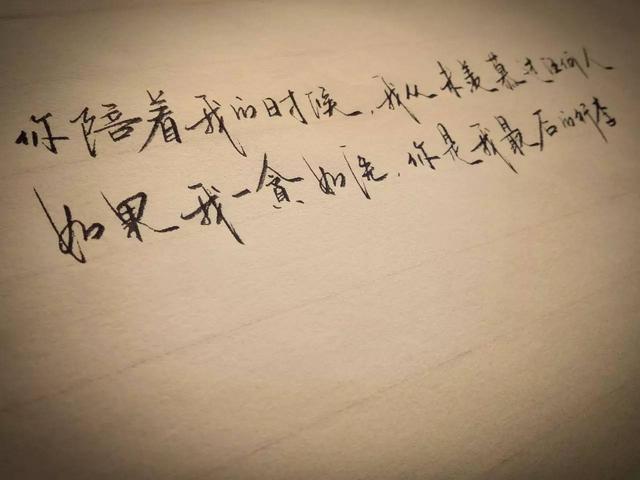 你陪着我的时候,我从未羡慕过任何人
如果我一貧如洗,你是我最后的行李